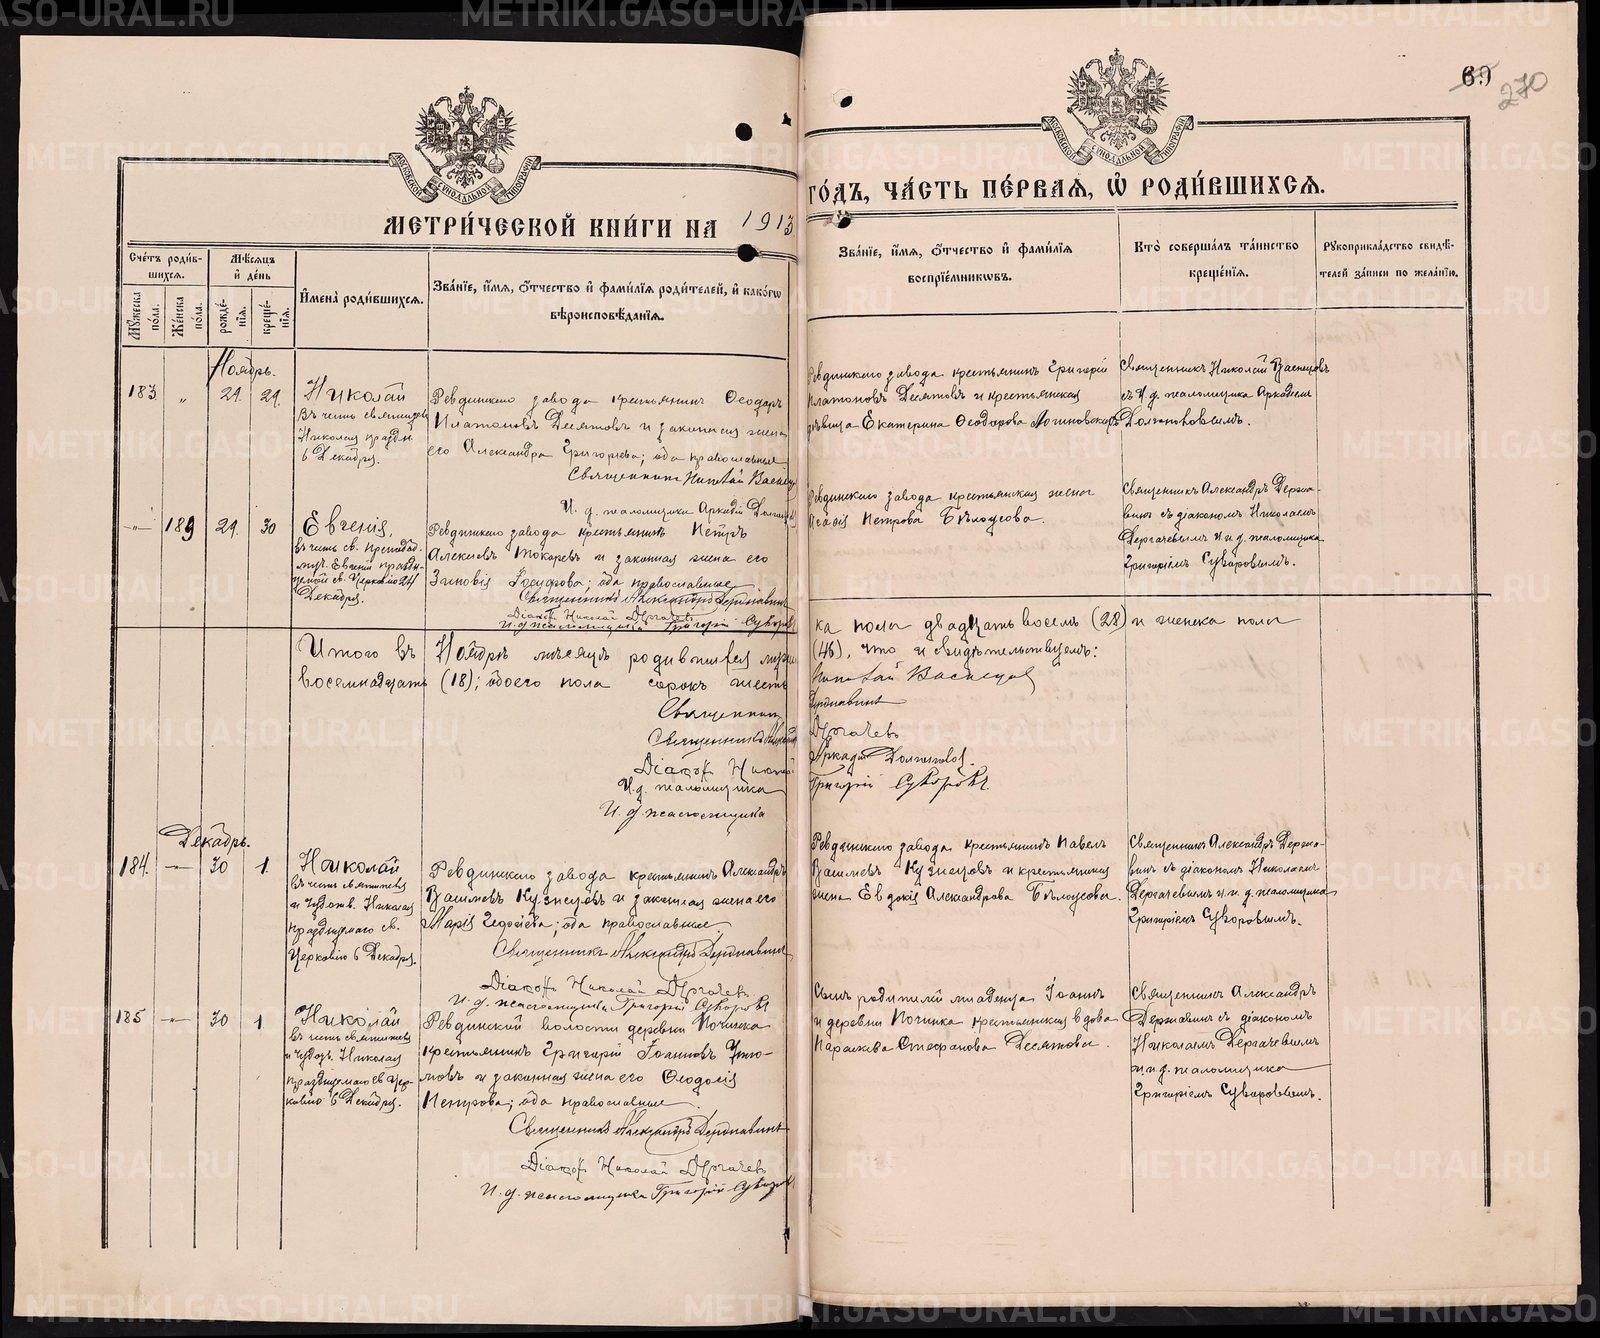 69
270
МОСКОВСКОЙ СѴНОДАЛЬНОЙ ТИПОГРАФІИ
МОСКОВСКОЙ СѴНОДАЛЬНОЙ ТИПОГРАФІИ
МЕТРИ́ЧЕСКОЙ КНИ́ГИ НА 1913
ГО́ДЪ, ЧА́СТЬ ПЕ́РВАЯ, Ѽ РОДИ́ВШИХСЯ.
Сче́тъ роди́в-
шихся.
Мꙋжеска по́ла.
Же́нска по́ла.
Мѣ́сяцъ
и҆ де́нь
рожде́-
нїя.
креще́-
нїя.
И҆мена̀ роди́вшихся.
Зва́нїе, и҆́мя, ѻ҆́тчество и҆ фами́лїя роди́телей, и҆ како́гѡ
вѣроисповѣ́данїя.
Зва́нїе, и҆́мя, ѻ҆́тчество и҆ фами́лїя
воспрїе́мникѡвъ.
Кто̀ соверша́лъ та́инство
креще́нїя.
Рꙋкоприкла́дство свидѣ́-
телей за́писи по жела́нїю.
Ноябрь.
183
"
29.
29.
Николай
Въ честь святителя
Николая праздн.
6 Декабря.
Ревдинскаго завода крестьянинъ Ѳеодоръ
Платоновъ Десятовъ и законная жена
его Александра Григорьева; оба православные
Священникъ Николай Васнецов
И. д. псаломщика Аркадій Долгановъ
Ревдинскаго завода крестьянинъ Григорій
Платоновъ Десятовъ и крестьянская
дѣвица Екатерина Ѳеодорова Логиновскихъ
Священникъ Николай Васнецовъ
съ И. д. псаломщика Аркадіемъ
Долгановымъ.
—"—
189
29.
30
Евгенія,
въ честь св. преподоб.
муч. Евгеніи праздну-
емой св. Церковію 24
Декабря.
Ревдинскаго завода крестьянинъ Петръ
Алексѣевъ Токаревъ и законная жена его
Зиновія Іосифова; оба православные
Священникъ Александръ Державинъ
Діаконъ Николай Дергачевъ
И. д. псаломщика Григорій Суворовъ
Ревдинскаго завода крестьянская жена
Петрова Бѣлоусова.
Священникъ Александръ Держа-
винъ съ діакономъ Николаемъ
Дергачевымъ и и. д. псаломщика
Григоріемъ Суворовымъ.
Итого въ Ноябрѣ мѣсяцѣ родившихся муже
ска пола двадцать восемь (28) и женска пола
восемнадцать (18); обоего пола сорокъ шесть
(46), что и свидѣтельствуемъ:
Священникъ Николай Васнецов
Священникъ Александръ Державинъ
Діаконъ Николай Дергачевъ
И. д. псаломщика Аркадій Долгановъ.
И. д. псаломщика Григорій Суворовъ.
Декабрь.
184.
—"—
30
1.
Николай
въ честь святителя
и чудотв. Николая
празднуемаго св.
Церковію 6 Декабря.
Ревдинскаго завода крестьянинъ Александръ
Васильевъ Кузнецовъ и законная жена его
Марія Ѳедосѣева; оба православные.
Священникъ Александръ Державинъ
Діаконъ Николай Дергачевъ
И. д. псаломщика Григорій Суворовъ
Ревдинскаго завода крестьянинъ Павелъ
Васильевъ Кузнецовъ и крестьянская
жена Евдокія Александрова Бѣлоусова.
Священникъ Александръ Держа-
винъ съ діакономъ Николаемъ
Дергачевымъ и и. д. псаломщика
Григоріемъ Суворовымъ.
185
—"—
30
1
Николай
въ честь святителя
и чудотв. Николая
празднуемаго св. Цер-
ковію 6 Декабря.
Ревдинской волости деревни Починка
крестьянинъ Григорій Іоанновъ
и законная жена его Ѳеодосія
Петрова; оба православные.
Священникъ Александръ Державинъ
Діаконъ Николай Дергачевъ
И. д. псаломщика Григорій Суворовъ
Сынъ родителей младенца Іоаннъ
и деревни Починка крестьянская вдова
Параскева Стефанова Десятова.
Священникъ Александръ
Державинъ съ діакономъ
Николаемъ Дергачевымъ
и и. д. псаломщика
Григоріемъ Суворовымъ.
METRIKI.GASO-URAL.RU